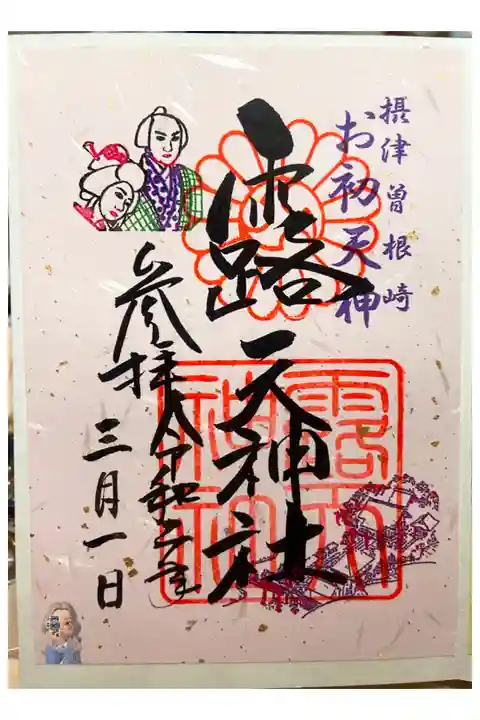 摂津曽根崎
お初天神
露天神社
露天神社
参拝令和五年
三月一日